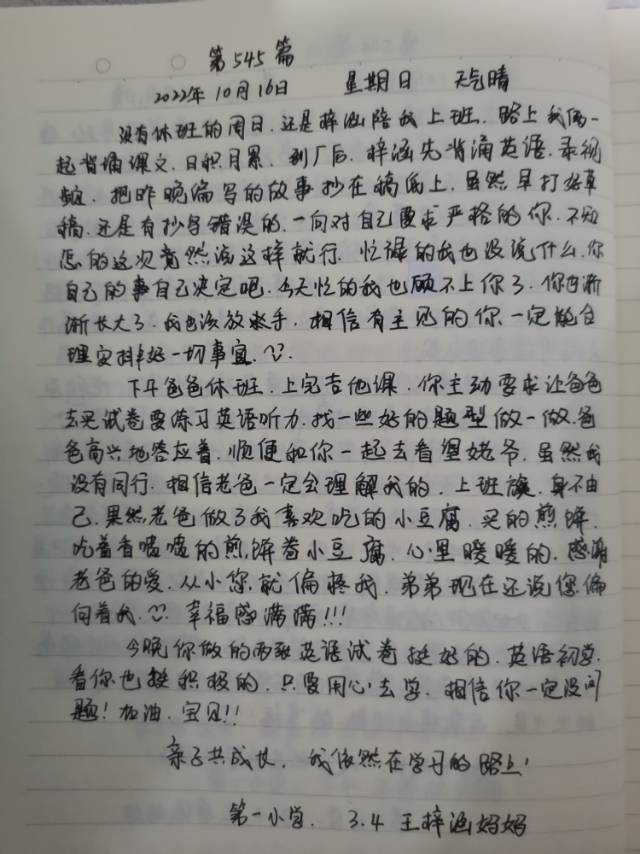 第545篇
2022年10月16日 星期日 天气晴
没有休班的周日,还是梓涵陪我上班,路上我俩一
起背诵课文,日积月累,到厂后,梓涵先背诵英语,录视
频,把昨晚编写的故事抄在稿纸上,虽然早打好草
稿,还是有抄写错误的,一向对自己要求严格的你,不知
怎的这次竟然说这样就行,忙碌的我也没说什么,你
自己的事自己决定吧,今天忙的我也顾不上你了,你也渐
渐长大了,我也该放手,相信有主见的你一定能合
理安排好一切事宜.
下午爸爸休班,上完吉他课,你主动要求让爸爸
去买试卷要练习英语听力,找一些好的题型做一做,爸
爸高兴地答应着,顺便和你一起去看望姥爷,虽然我
没有同行,相信老爸一定会理解我的,上班族,身不由
己,果然老爸做了我喜欢吃的小豆腐,买的煎饼,
吃着香喷喷的煎饼卷小豆腐,心里暖暖的,感谢
老爸的爱,从小您就偏疼我,弟弟现在还说您偏
向着我,幸福感满满!!!
今晚你做的两张英语试卷挺好的,英语初学,
看你也挺积极的,只要用心去学,相信你一定没问
题!加油,宝贝!!
亲子共成长,我依然在学习的路上!
第一小学. 3.4 王梓涵妈妈